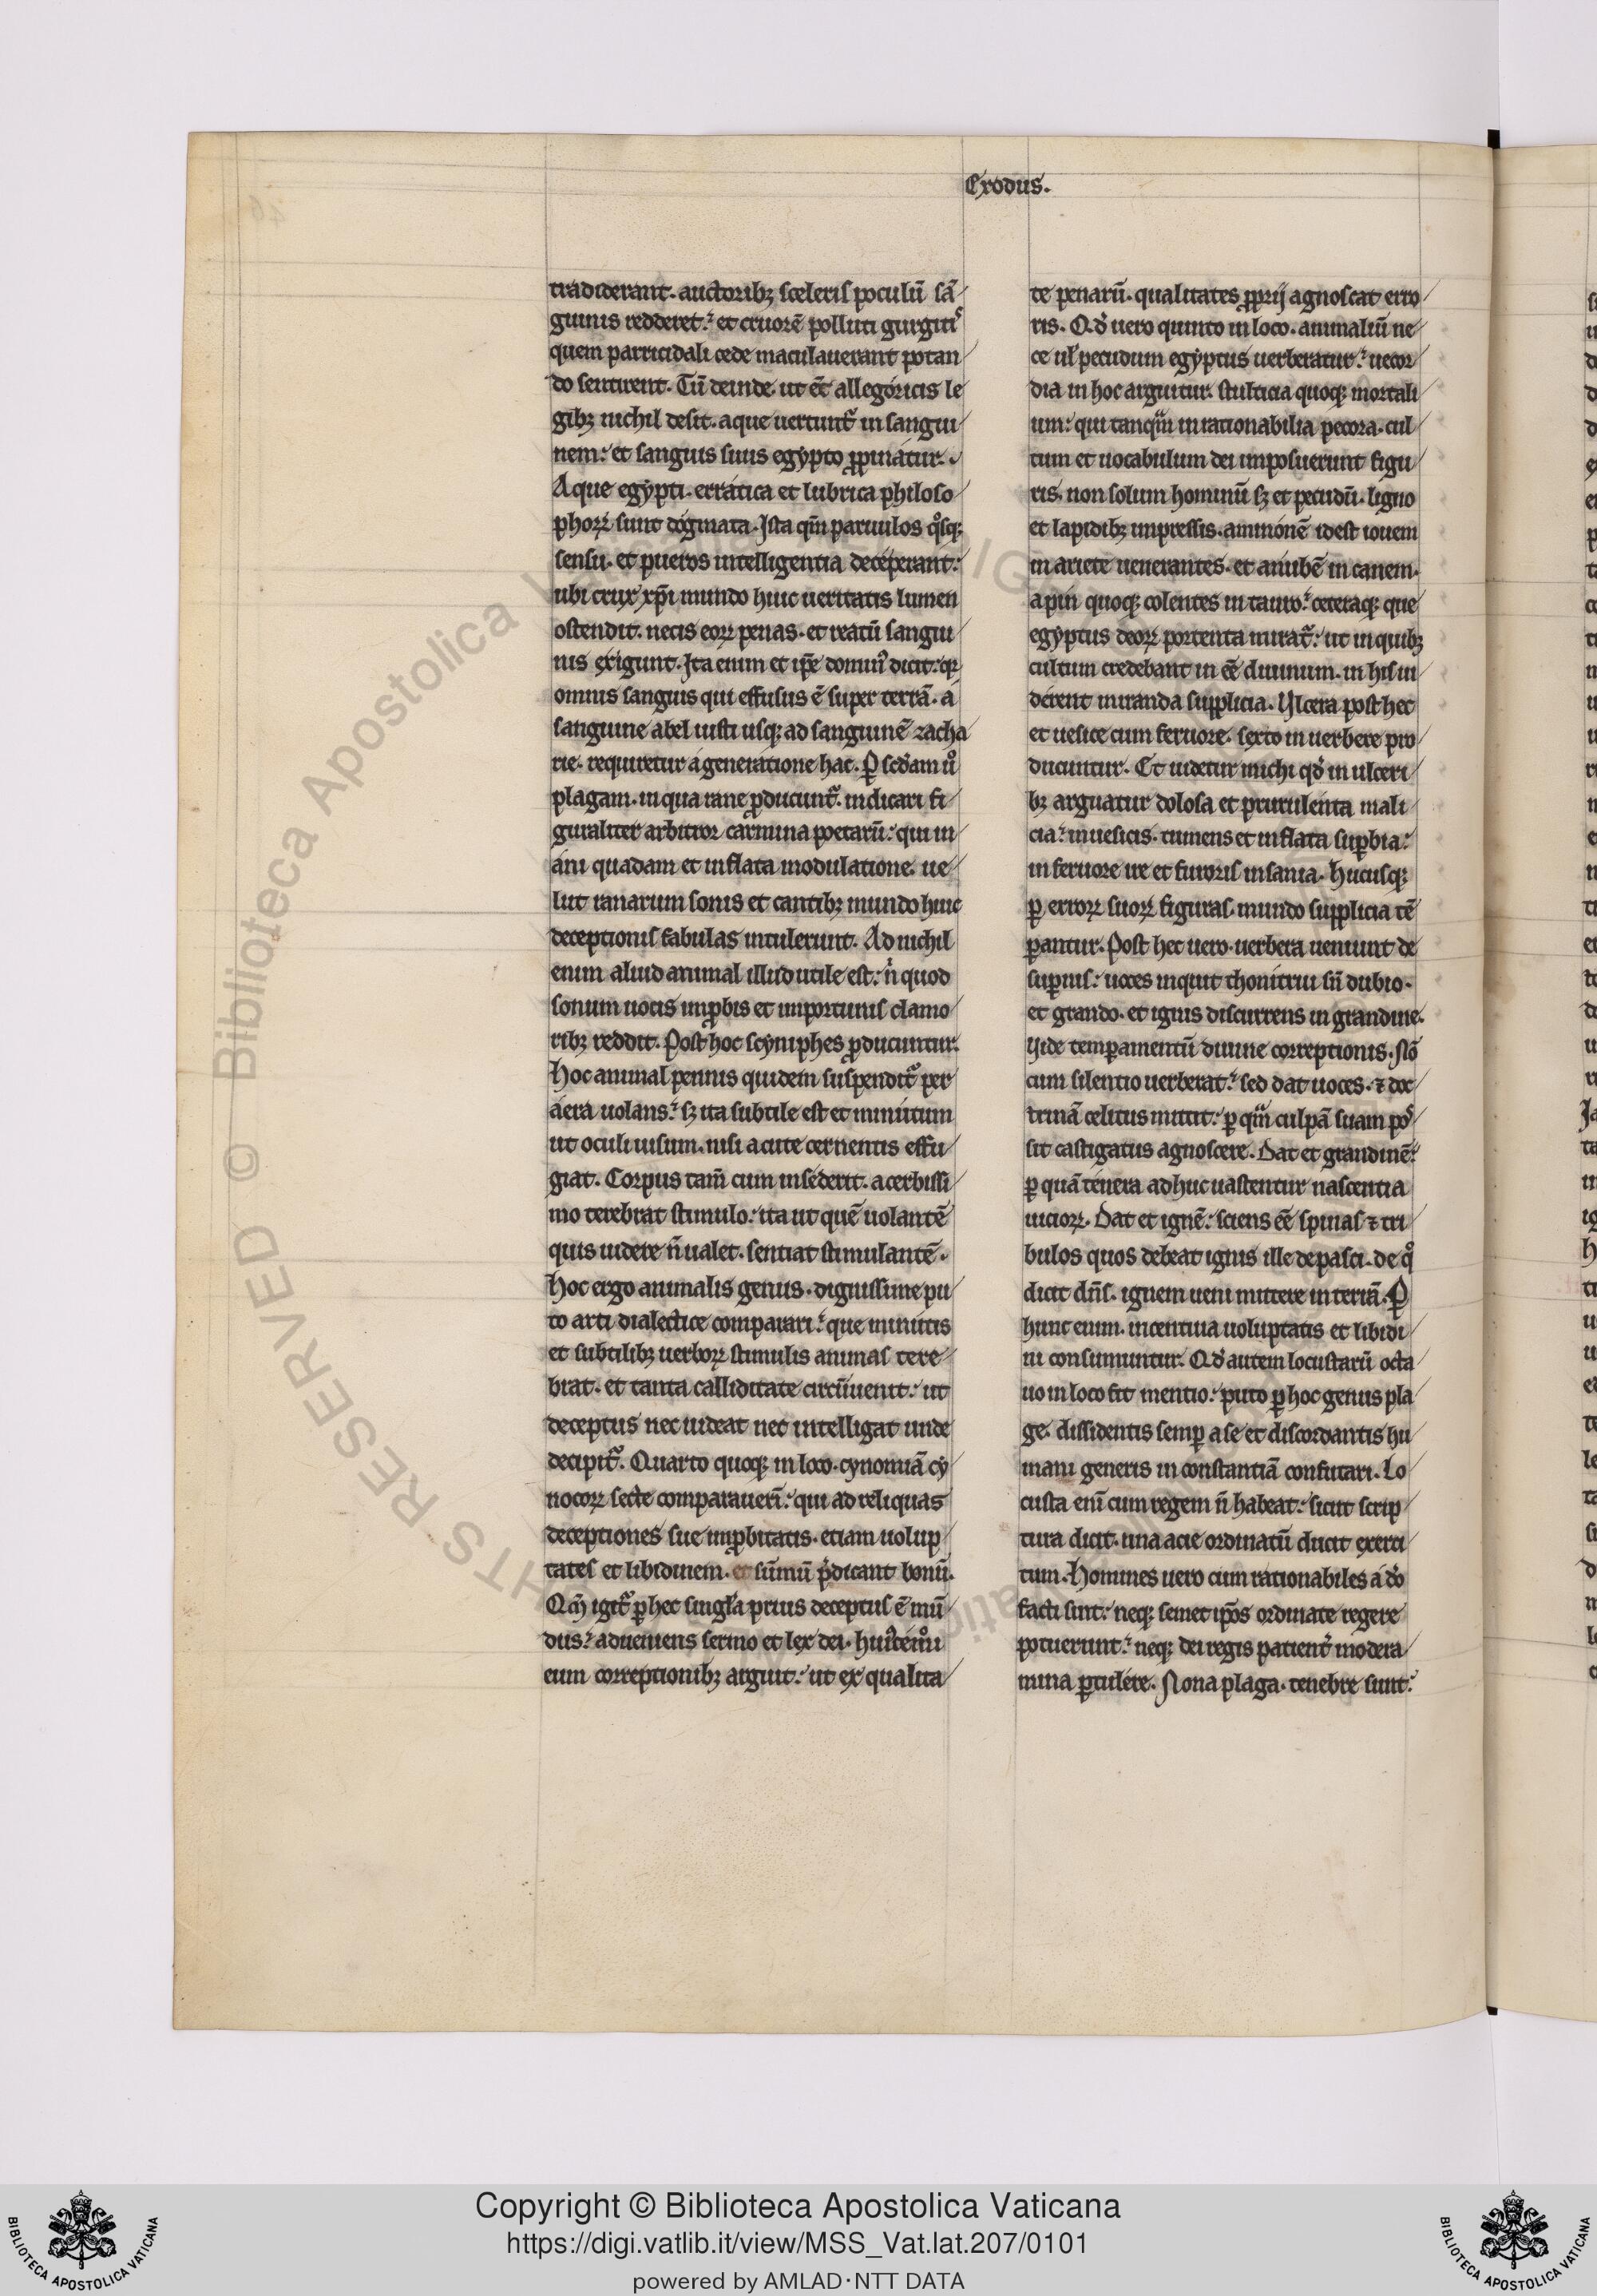 Exodus.
tradiderant. auctoribꝫ sceleris poculū sā
guinis redderet. et cruorē polluti gurgitis
quem parricidali cede maculauerant potan
do sentirent. Tū deinde. ut ec̄ allegoricis le
gibꝫ nichil desit. aque uertunt᷑ in sangui
nem: et sanguis suus egypto ꝓpinatur.
Aque egypti. erratica et lubrica philoso
phoꝝ sunt dogmata. Ista qm̄ paruulos qͦsqꝫ
sensu. et pueros intelligentia deceperant:
ubi crux xp̄i mundo huic ueritatis lumen
ostendit. necis eoꝝ penas. et reatū sangui
nis exigunt. Ita enim et ip̄e domin᷒ dicit: qr
omnis sanguis qui effusus ē super terrā. a
sanguine abel iusti usqꝫ ad sanguinē zacha
rie. requiretur a generatione hac. Ꝑ scd̄am ỏ
plagam. in qua rane ꝓducunt᷑. indicari fi
guraliter arbitror carmina poetarū: qui in
ani quadam et inflata modulatione. ue
lut ranarum sonis et cantibꝫ mundo huic
deceptionis fabulas intulerunt. Ad nichil
enim aliud animal illud utile est: n̄ quod
sonum uocis imꝓbis et importunis clamo
ribꝫ reddit. Post hoc scyniphes ꝓducuntur.
Hoc animal pennis quidem suspendit᷑ per
aera uolans. sꝫ ita subtile est et minutum
ut oculi uisum. nisi acute cernentis effu
giat. Corpus tam̄ cum insederit. acerbissi
mo terebrat stimulo: ita ut quē uolantē
quis uidere n̄ ualet. sentiat stimulantē.
Hoc ergo animalis genus. dignissime pu
to arti dialectice comparari. que minutis
et subtilibꝫ uerboꝝ stimulis animas tere
brat. et tanta calliditate circūuenit: ut
deceptus nec uideat nec intelligat unde
decipit᷑. Quarto quoqꝫ in loco. cynomiā cy
nocoꝝ secte comparauerī: qui ad reliquas
deceptiones sue imꝓbitatis. etiam uolup
tates et libidinem. et sūmū p̄dicant bonū.
Qm̄ igit᷑ ꝑ hec singl'a prius deceptus ē mū
dus. adueniens sermo et lex dei.
eum correptionibꝫ arguit: ut ex qualita
te penarū. qualitates ꝓprij agnoscat erro
ris. Qd̄ uero quinto in loco. animaliū ne
ce ul̄ pecudum egyptus uerberatur. uecor
dia in hoc arguitur. stulticia quoqꝫ mortali
um: qui tanqm̄ irrationabilia pecora. cul
tum et uocabulum dei imposuerunt figu
ris. non solum hominū sꝫ et pecudū. ligno
et lapidibꝫ impressis. ammonē idest iouem
in ariete uenerantes. et anubē in canem.
apin quoqꝫ colentes in tauro. ceteraqꝫ que
egyptus deoꝝ portenta mirat᷑: ut in quibꝫ
cultum credebant in eē diuinum. in his ui
derent miranda supplicia. Ulcera post hec
et uesice cum feruore. sexto in uerbere pro
ducuntur. Et uidetur michi qd̄ in ulceri
bꝫ arguatur dolosa et purulenta mali
cia. in uesicis. tumens et inflata suꝑbia:
in feruore ire et furoris insania. Hucusqꝫ
ꝑ erroꝝ suoꝝ figuras. mundo supplicia tē
ꝑantur. Post hec uero. uerbera ueniunt de
suꝑnis: uoces inquit thonitrui sn̄ dubio.
et grando. et ignis discurrens in grandine.
Uide temꝑamentū diuine correptionis. Nō
cum silentio uerberat. sed dat uoces. ⁊ doc
trinā celitus mittit: ꝑ qm̄ culpā suam pos
sit castigatus agnoscere. Dat et grandinē:
ꝑ quā tenera adhuc uastentur nascentia
uicioꝝ. Dat et ignē: sciens eē spinas ⁊ tri
bulos quos debeat ignis ille depasci. de qͦ
dicit dn̄s. ignem ueni mittere in terrā. Ꝑ
hunc enim. incentiua uoluptatis et libidi
ni consumuntur. Qd̄ autem locustarū octa
uo in loco fit mentio: puto ꝑ hoc genus pla
ge. dissidentis semꝑ a se et discordantis hu
mani generis inconstantiā confutari. Lo
custa enī cum regem n̄ habeat: sicut scrip
tura dicit. una acie ordinatū ducit exerci
tum. Homines uero cum rationabiles a dō
facti sint: neqꝫ semet ip̄os ordinate regere
potuerunt. neqꝫ dei regis patient᷑ modera
mina ꝑtulere. Nona plaga. tenebre sunt:
© Biblioteca Apostolica Vaticana
RIGHTS RESERVED
Copyright © Biblioteca Apostolica Vaticana
https://digi.vatlib.it/view/MSS_Vat.lat.207/0101
powered by AMLAD·NTT DATA
BIBLIOTECA APOSTOLICA VATICANA
BIBLIOTECA APOSTOLICA VATICANA